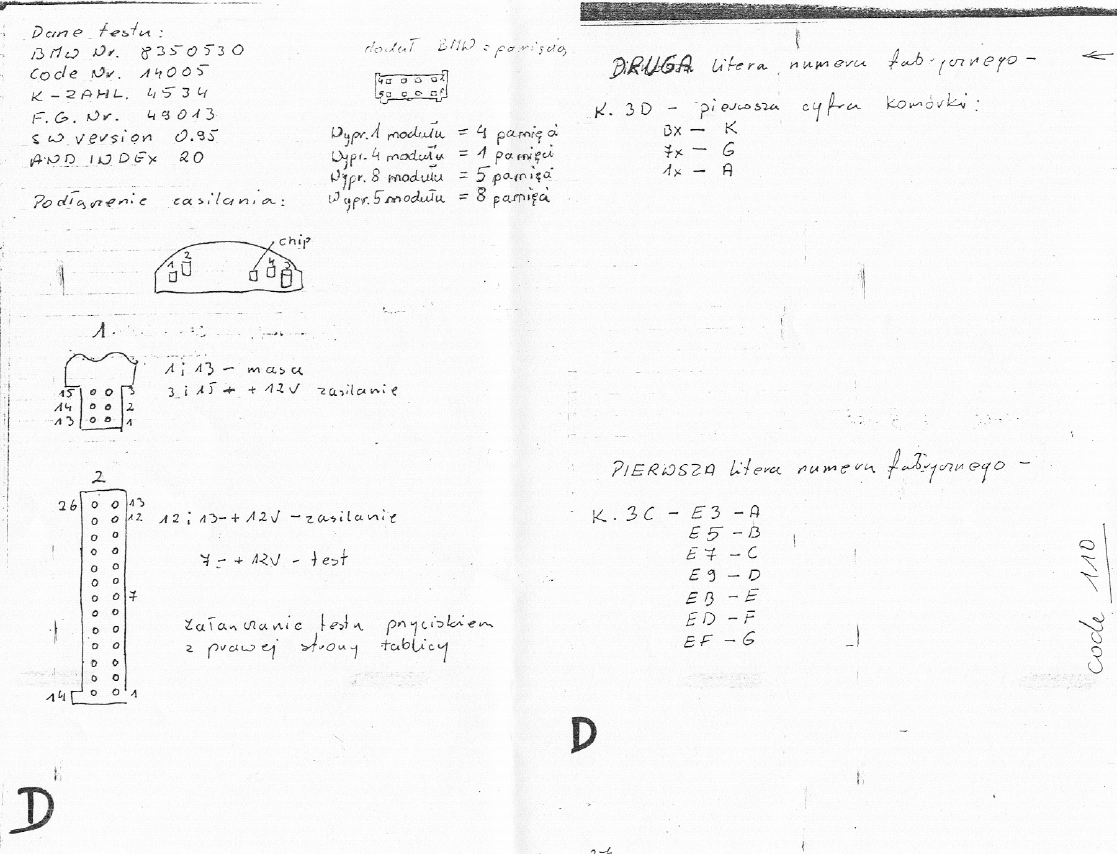 Dane testu:
BMW Nr. 8350530
Code Nr. 14005
K-ZAHL. 4534
F.G. Nr. 49013
SW version 0.95
AND INDEX 20
moduł BMW = pamięcią
Wypr. 1 modułu = 4 pamięci
Wypr. 4 modułu = 1 pamięci
Wypr. 8 modułu = 5 pamięci
Wypr. 5 modułu = 8 pamięci
Podłączenie zasilania:
chip
1 2 4 3
1
15 3
14 2
13 1
1 i 13 - masa
3 i 15 + +12V zasilanie
2
26 13
12
7
14 1
12 i 13 - +12V - zasilanie
7 - +12V - test
Załączanie testu przyciskiem
z prawej strony tablicy
D
DRUGA litera numeru fabrycznego -
K. 3D - pierwsza cyfra komórki:
3x - K
7x - G
1x - A
PIERWSZA litera numeru fabrycznego -
K. 3C - E3 - A
E5 - B
E7 - C
E9 - D
EB - E
ED - F
EF - G
code 110
D